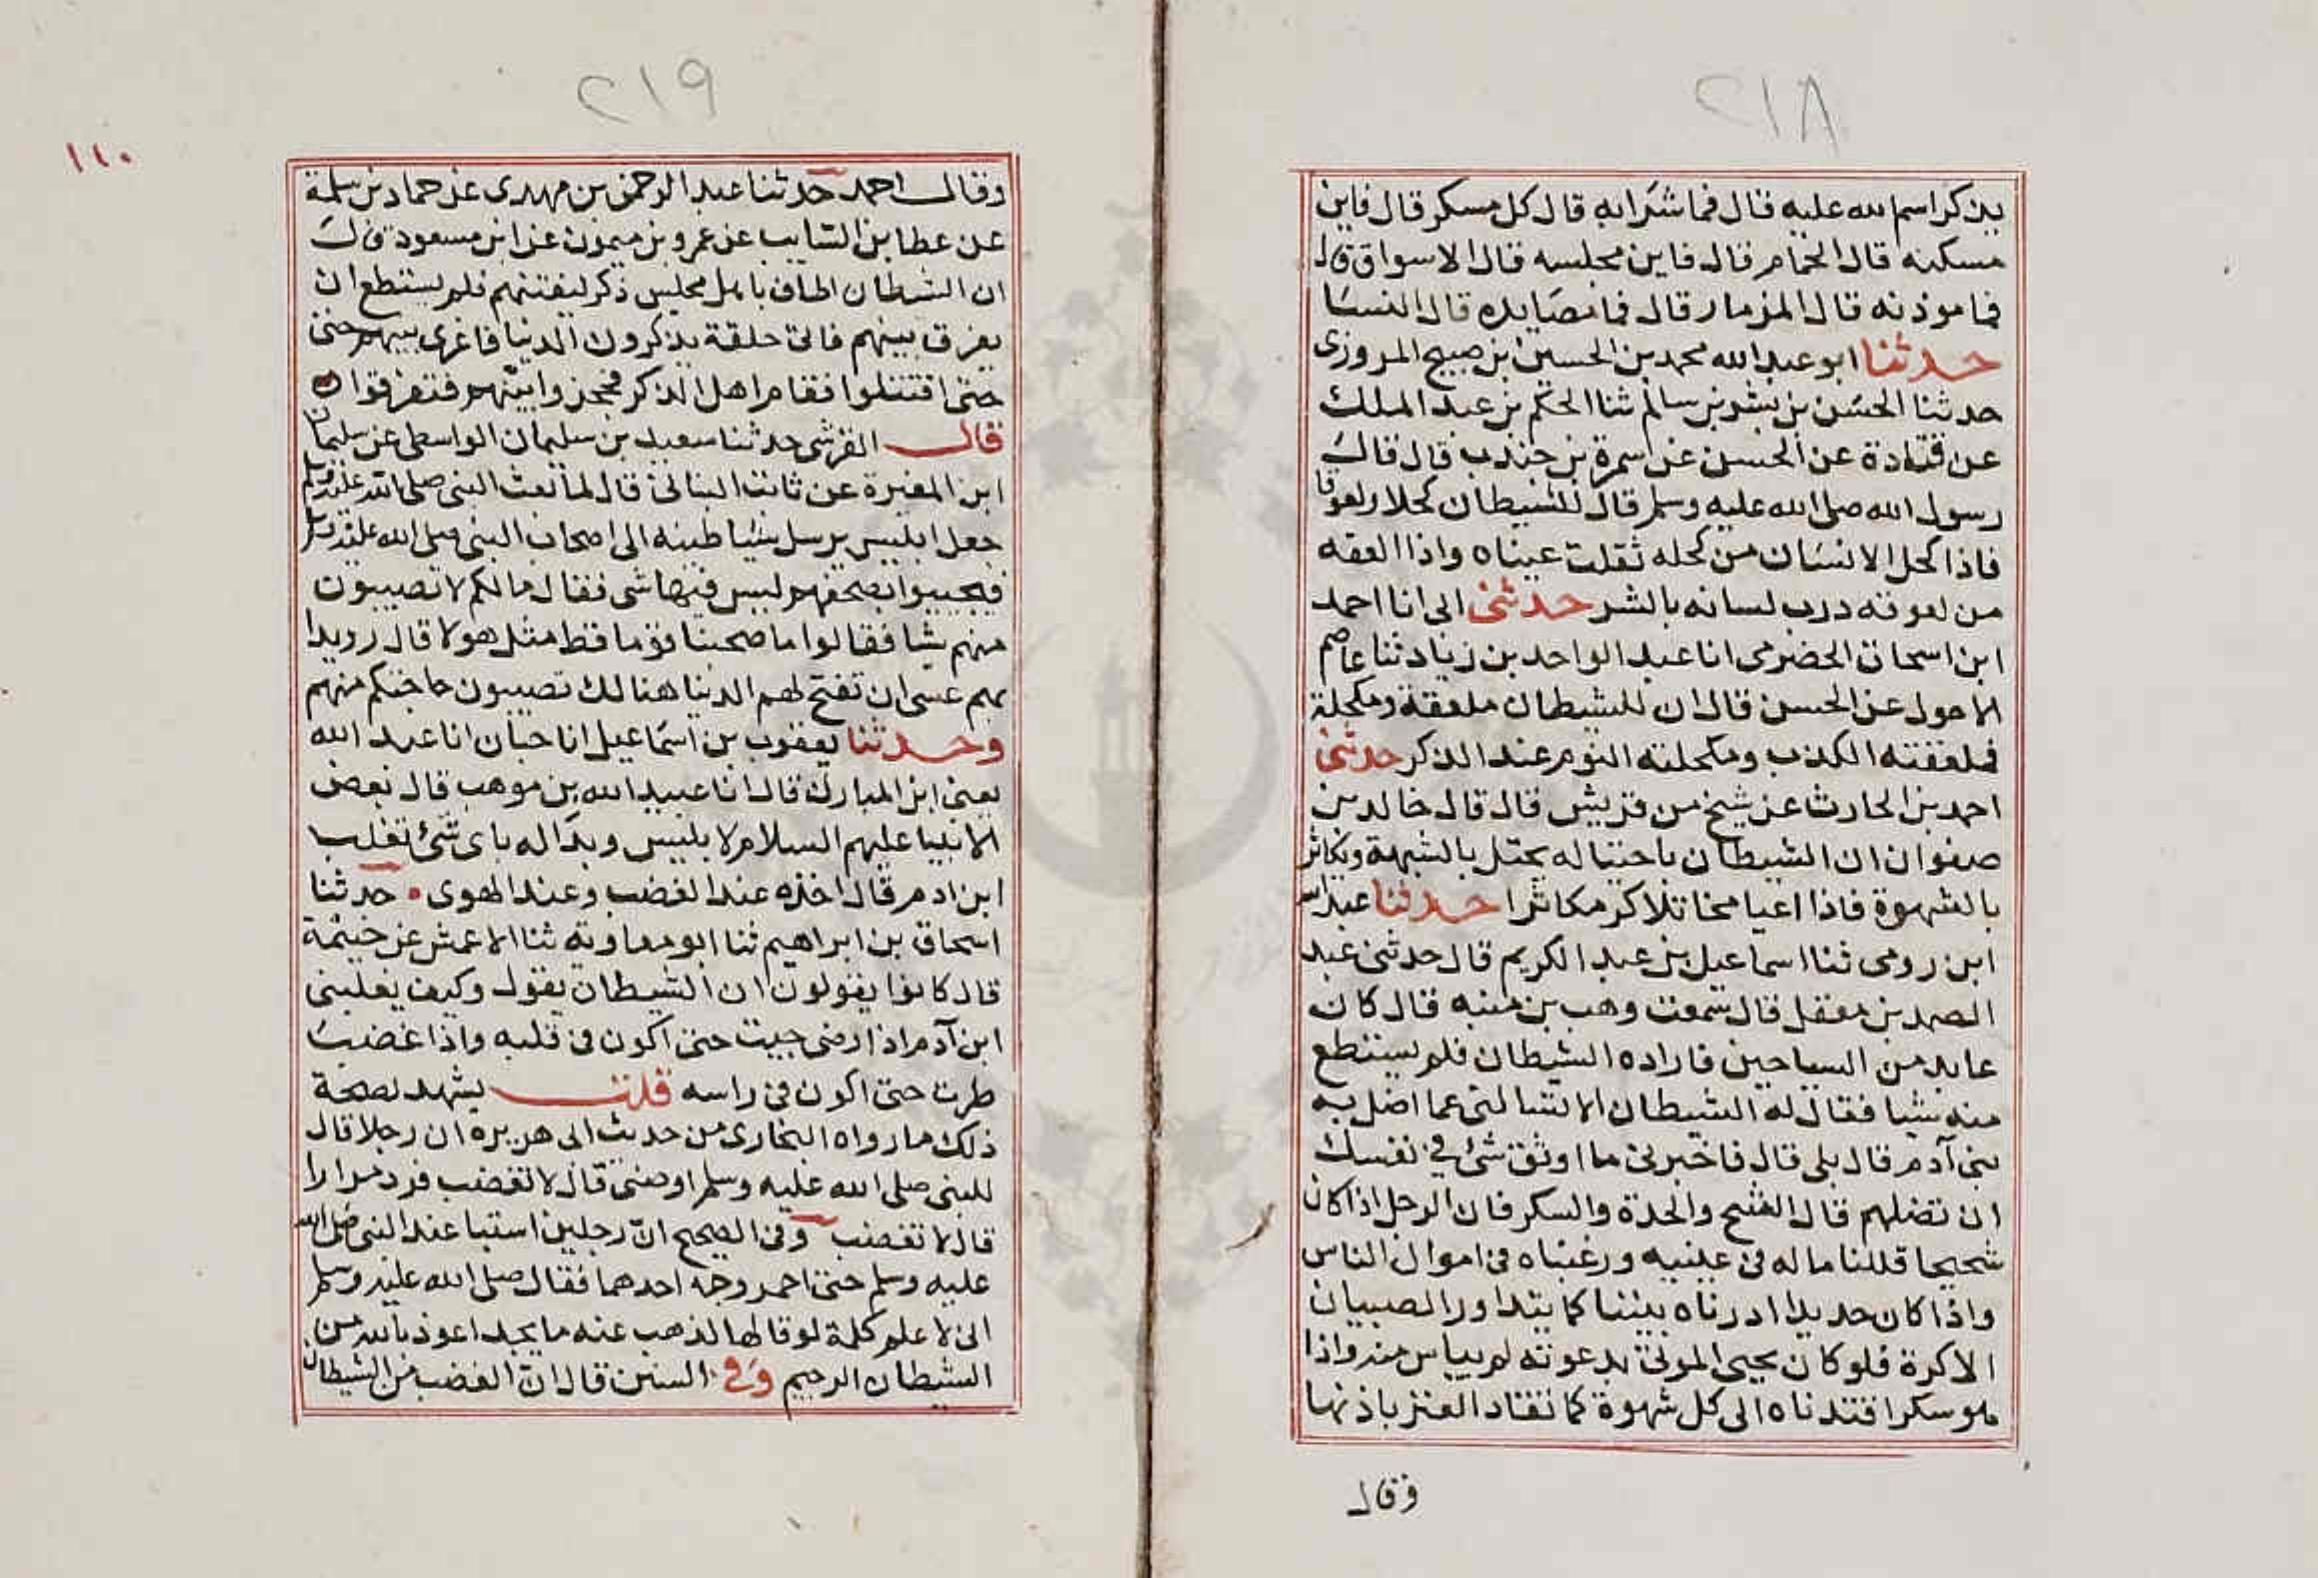 ٢١٨
يذكر اسم الله عليه قال فما شرابه قال كل مسكر قال فاين
مسكنه قال الحمام قال فاين مجلسه قال الاسواق قال
فما موذنه قال المزمار قال فما مصايده قال النسا
حدثنا ابو عبد الله محمد بن الحسين ابن صبيح المروزى
حدثنا الحسن بن بشر بن سالم ثنا الحكم بن عبد الملك
عن قتادة عن الحسن عن سمرة بن جندب قال قال
رسول الله صلى الله عليه وسلم قال للشيطان كحلا ولعوقا
فاذا كحل الانسان من كحله ثقلت عيناه واذا العقه
من لعوقه درب لسانه بالشر حدثنى ابى انا احمد
ابن اسحاق الحضرمى انا عبد الواحد بن زياد ثنا عاصم
الاحول عن الحسن قال ان للشيطان ملعقة ومكحلة
فملعقته الكذب ومكحلته النوم عند الذكر حدثنى
احمد بن الحارث عن شيخ من قريش قال قال خالد بن
صفوان ان الشيطان ياحنتاله يختل بالشبهة ويكاثر
بالشهوة فاذا اعيا مخاتلا كر مكاثرا حدثنا عبد الله
ابن رومى ثنا اسماعيل بن عبد الكريم قال حدثنى عبد
الصمد بن معقل قال سمعت وهب بن منبه قال كان
عابد من السياحين فاراده الشيطان فلم يستطع
منه شيا فقال له الشيطان الا تسالنى عما اضل به
بنى آدم قال بلى قال فاخبرنى ما اوثق شئ في نفسك
ان تضلهم قال الشح والحدة والسكر فان الرجل اذا كان
شحيحا قللنا ماله فى عينيه ورغبناه فى اموال الناس
واذا كان حديدا ادرناه بيننا كما يتداور الصبيان
الاكرة فلو كان يحيى الموتى بدعوته لم يياس منه واذا
هو سكر اقتدناه الى كل شهوة كما تقاد العنز باذنها
وقال
٢١٩
١١٠
وقال احمد حدثنا عبد الرحمن بن مهدى عن حماد بن سلمة
عن عطا بن السايب عن عمرو بن ميمون عن ابن مسعود قال
ان الشيطان اطاف باهل مجلس ذكر ليفتنهم فلم يستطع ان
يفرق بينهم فاتى حلقة يذكرون الدنيا فاغرى بينهم حتى
حتى اقتتلوا فقام اهل الذكر فحجزوا بينهم فتفرقوا
قال القرشى حدثنا سعيد بن سليمان الواسطى عن سليمان
ابن المغيرة عن ثابت البنانى قال لما بعث النبى صلى الله عليه وسلم
جعل ابليس يرسل شياطينه الى اصحاب النبى صلى الله عليه وسلم
فيجيبوا بصحفهم ليس فيها شى فقال ما لكم لا تصيبون
منهم شيا فقالوا ما صحبنا قوما قط مثل هولا قال رويدا
بهم عسى ان تفتح لهم الدنيا هنالك تصيبون حاجتكم منهم
وحدثنا يعقوب بن اسماعيل انا حبان انا عبد الله
يعنى ابن المبارك قال انا عبيد الله بن موهب قال بعض
الانبيا عليهم السلام لابليس وبدا له باى شئ تغلب
ابن ادم قال اخذه عند الغضب وعند الهوى ه حدثنا
اسحاق بن ابراهيم ثنا ابو معاوية ثنا الاعمش عن خيثمة
قال كانوا يقولون ان الشيطان يقول وكيف يغلبنى
ابن آدم اذا رضى جيت حتى اكون فى قلبه واذا غضب
طرت حتى اكون فى راسه قلت يشهد لصحة
ذلك ما رواه البخارى من حديث ابى هريره ان رجلا قال
للنبى صلى الله عليه وسلم اوصنى قال لا تغضب فردد مرارا
قال لا تغضب وفى الصحيح ان رجلين استبا عند النبى صلى الله
عليه وسلم حتى احمر وجه احدهما فقال صلى الله عليه وسلم
انى لا علم كلمة لو قالها لذهب عنه ما يجد اعوذ بالله من
الشيطان الرجيم وفي السنن قال ان الغضب من الشيطان